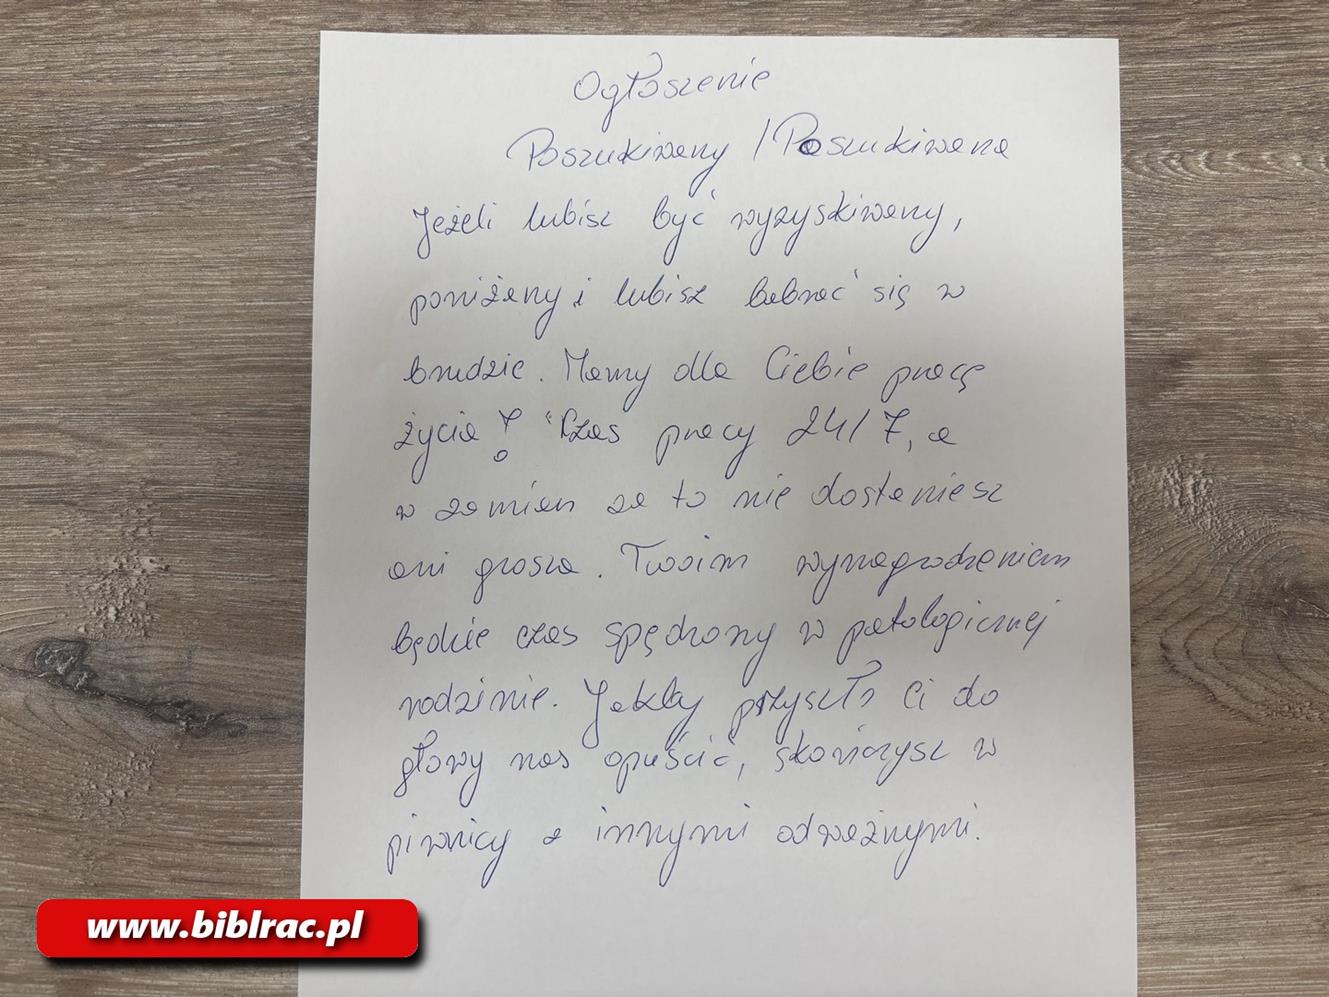 Ogłoszenie
Poszukiwany / Poszukiwana
Jeżeli lubisz być wyzyskiwany,
poniżany i lubisz babrać się w
brudzie. Mamy dla Ciebie pracę
życia! Czas pracy 24/7, a
w zamian za to nie dostaniesz
ani grosza. Twoim wynagrodzeniem
będzie czas spędzony w patologicznej
rodzinie. Jakby przyszło Ci do
głowy nas opuścić, skończysz w
piwnicy z innymi odważnymi.
www.biblrac.pl